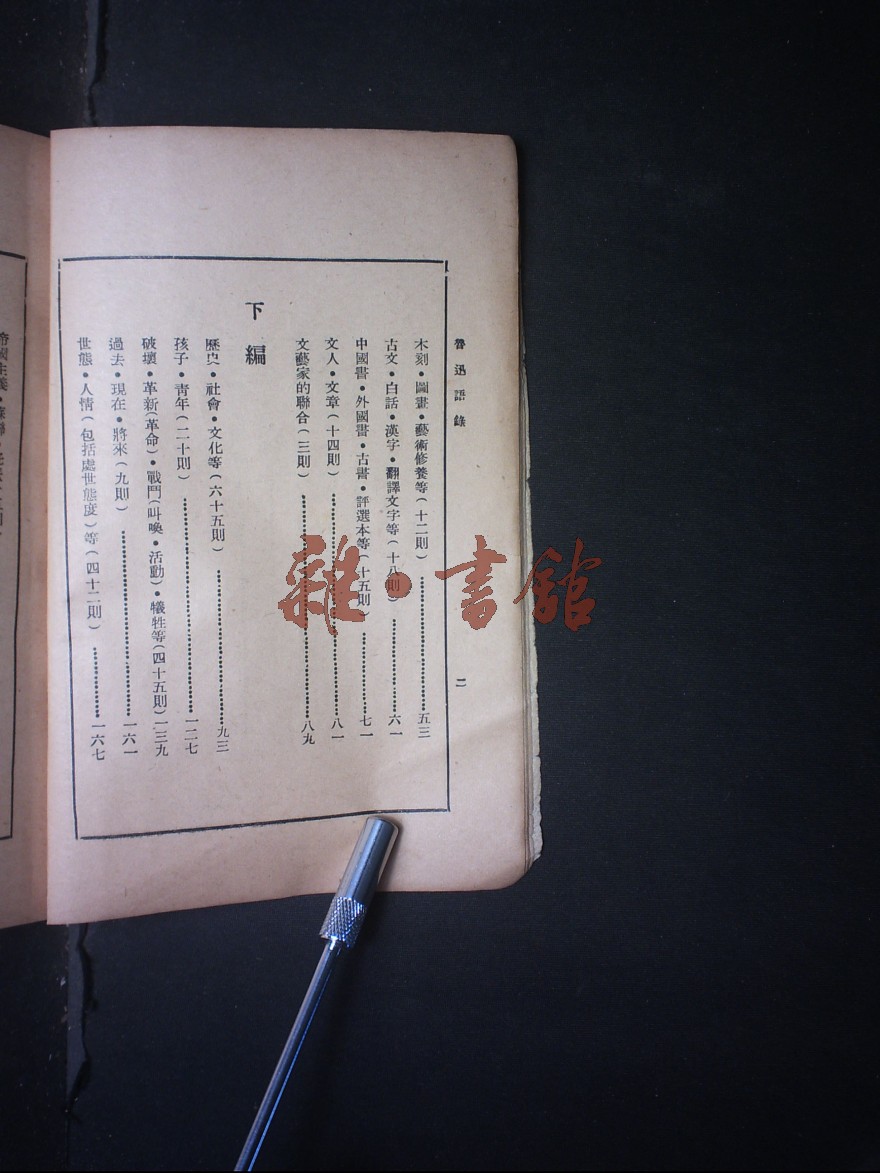 魯迅語錄
二
木刻•圖畫•藝術修養等(十二則)…………五三
古文•白話•漢字•翻譯文字等(十八則)…………六一
中國書•外國書•古書•評選本等(十五則)…………七一
文人•文章(十四則)…………八一
文藝家的聯合(三則)…………八九
下編
歷史•社會•文化等(六十五則)…………九三
孩子•青年(二十則)…………一二七
破壞•革新(革命)•戰鬥(叫喚•活動)•犧牲等(四十五則)一三九
過去•現在•將來(九則)…………一六一
世態•人情(包括處世態度)等(四十二則)…………一六七
帝國主義•
雜•書館